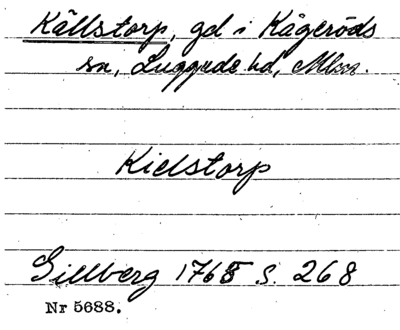 Källstorp, gd i Kågeröds
sn, Luggude hd, Mlm.
Kielstorp
Gillberg 1765 S. 268
Nr 5688.